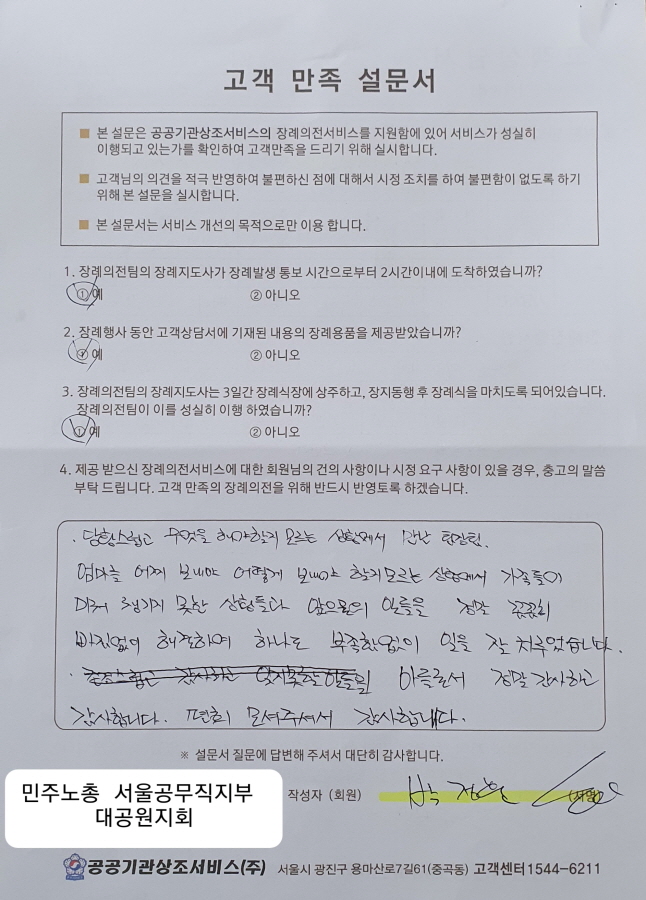 고객 만족 설문서
■ 본 설문은 공공기관상조서비스의 장례의전서비스를 지원함에 있어 서비스가 성실히
이행되고 있는가를 확인하여 고객만족을 드리기 위해 실시합니다.
■ 고객님의 의견을 적극 반영하여 불편하신 점에 대해서 시정 조치를 하여 불편함이 없도록 하기
위해 본 설문을 실시합니다.
■ 본 설문서는 서비스 개선의 목적으로만 이용 합니다.
1. 장례의전팀의 장례지도사가 장례발생 통보 시간으로부터 2시간이내에 도착하였습니까?
① 예 ② 아니오
2. 장례행사 동안 고객상담서에 기재된 내용의 장례용품을 제공받았습니까?
① 예 ② 아니오
3. 장례의전팀의 장례지도사는 3일간 장례식장에 상주하고, 장지동행 후 장례식을 마치도록 되어있습니다.
장례의전팀이 이를 성실히 이행 하였습니까?
① 예 ② 아니오
4. 제공 받으신 장례의전서비스에 대한 회원님의 건의 사항이나 시정 요구 사항이 있을 경우, 충고의 말씀
부탁 드립니다. 고객 만족의 장례의전을 위해 반드시 반영토록 하겠습니다.
. 당황스럽고 무엇을 해야할지 모르는 상황에서 만난 팀장님.
엄마를 어찌 보내야 어떻게 보내야 할지 모르는 상황에서 가족들이
미처 챙기지 못한 상황들과 앞으로의 일들을 정말 꼼꼼히
빠짐없이 해결하여 하나도 부족함없이 일을 잘 치루었습니다.
아들로서 정말 감사하고
감사합니다. 편히 모셔주셔서 감사합니다.
※ 설문서 질문에 답변해 주셔서 대단히 감사합니다.
민주노총 서울공무직지부
대공원지회
작성자 (회원) 박 (서명)
공공기관상조서비스(주) 서울시 광진구 용마산로7길61(중곡동) 고객센터1544-6211